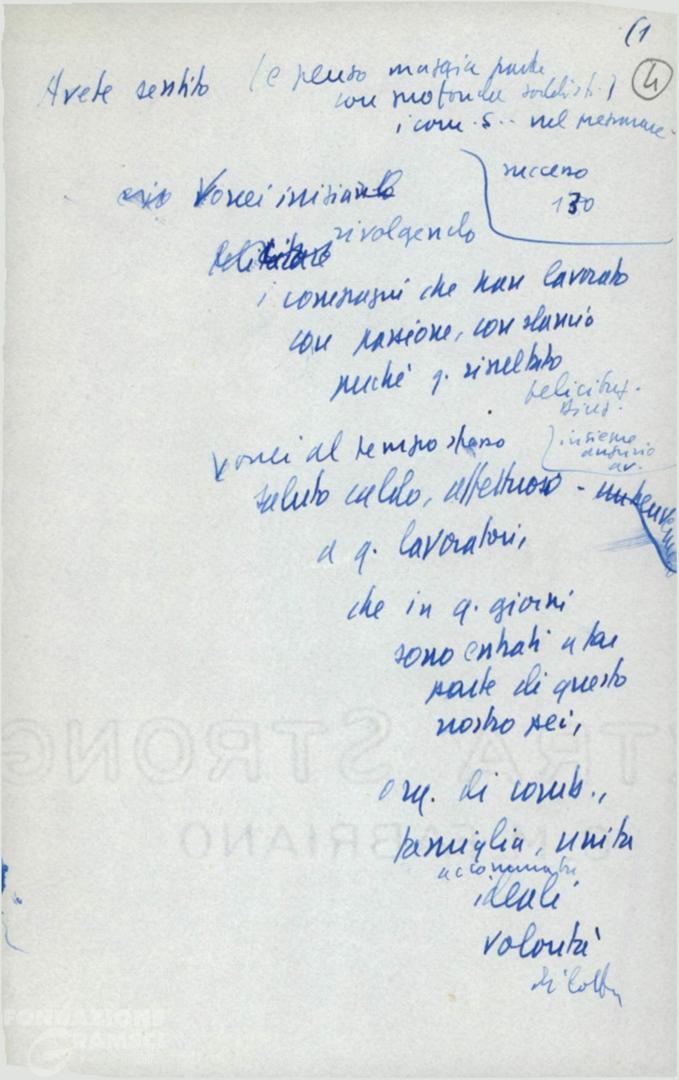 (1
4
Avete sentito (e penso maggior parte
con profonda soddisf.)
i com. S.. nel
successo
130
Vorrei iniziando
rivolgendo
i compagni che han lavorato
con passione, con slancio
perché q. risultato
felicitaz.
insieme
augurio
vorrei al tempo stesso
saluto caldo, affettuoso -
a q. lavoratori,
che in q. giorni
sono entrati a far
parte di questo
nostro pci,
org. di comb.,
famiglia, unita
accomunata
ideali
volontà
di lotta
EXTRA STRONG
FABRIANO
FONDAZIONE
GRAMSCI